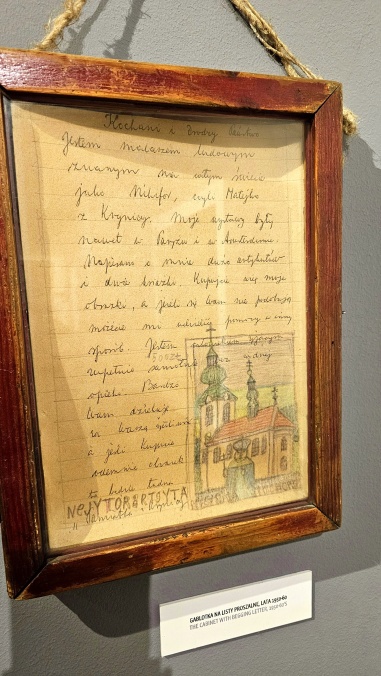 Kochani i Drodzy
Jestem malarzem ludowym
znanym na całym świecie
jako Nikifor, czyli Matejko
z Krynicy. Moje wystawy były
nawet w Paryżu i w Amsterdamie.
Napisano o mnie dużo artykułów
i dwie książki. Kupujcie więc moje
obrazki, a jeśli się Wam nie podobają
możecie mi udzielić pomocy w inny
sposób. Jestem
zupełnie samotny bez żadnej
opieki. Bardzo
Wam dziękuję
za Waszą
a jeśli kupicie
odemnie obrazek
to będzie ładna
NEJYTORSPTOYTA
GABLOTKA NA LISTY PROSZALNE, LATA 1950-60
THE CABINET WITH BEGGING LETTER,